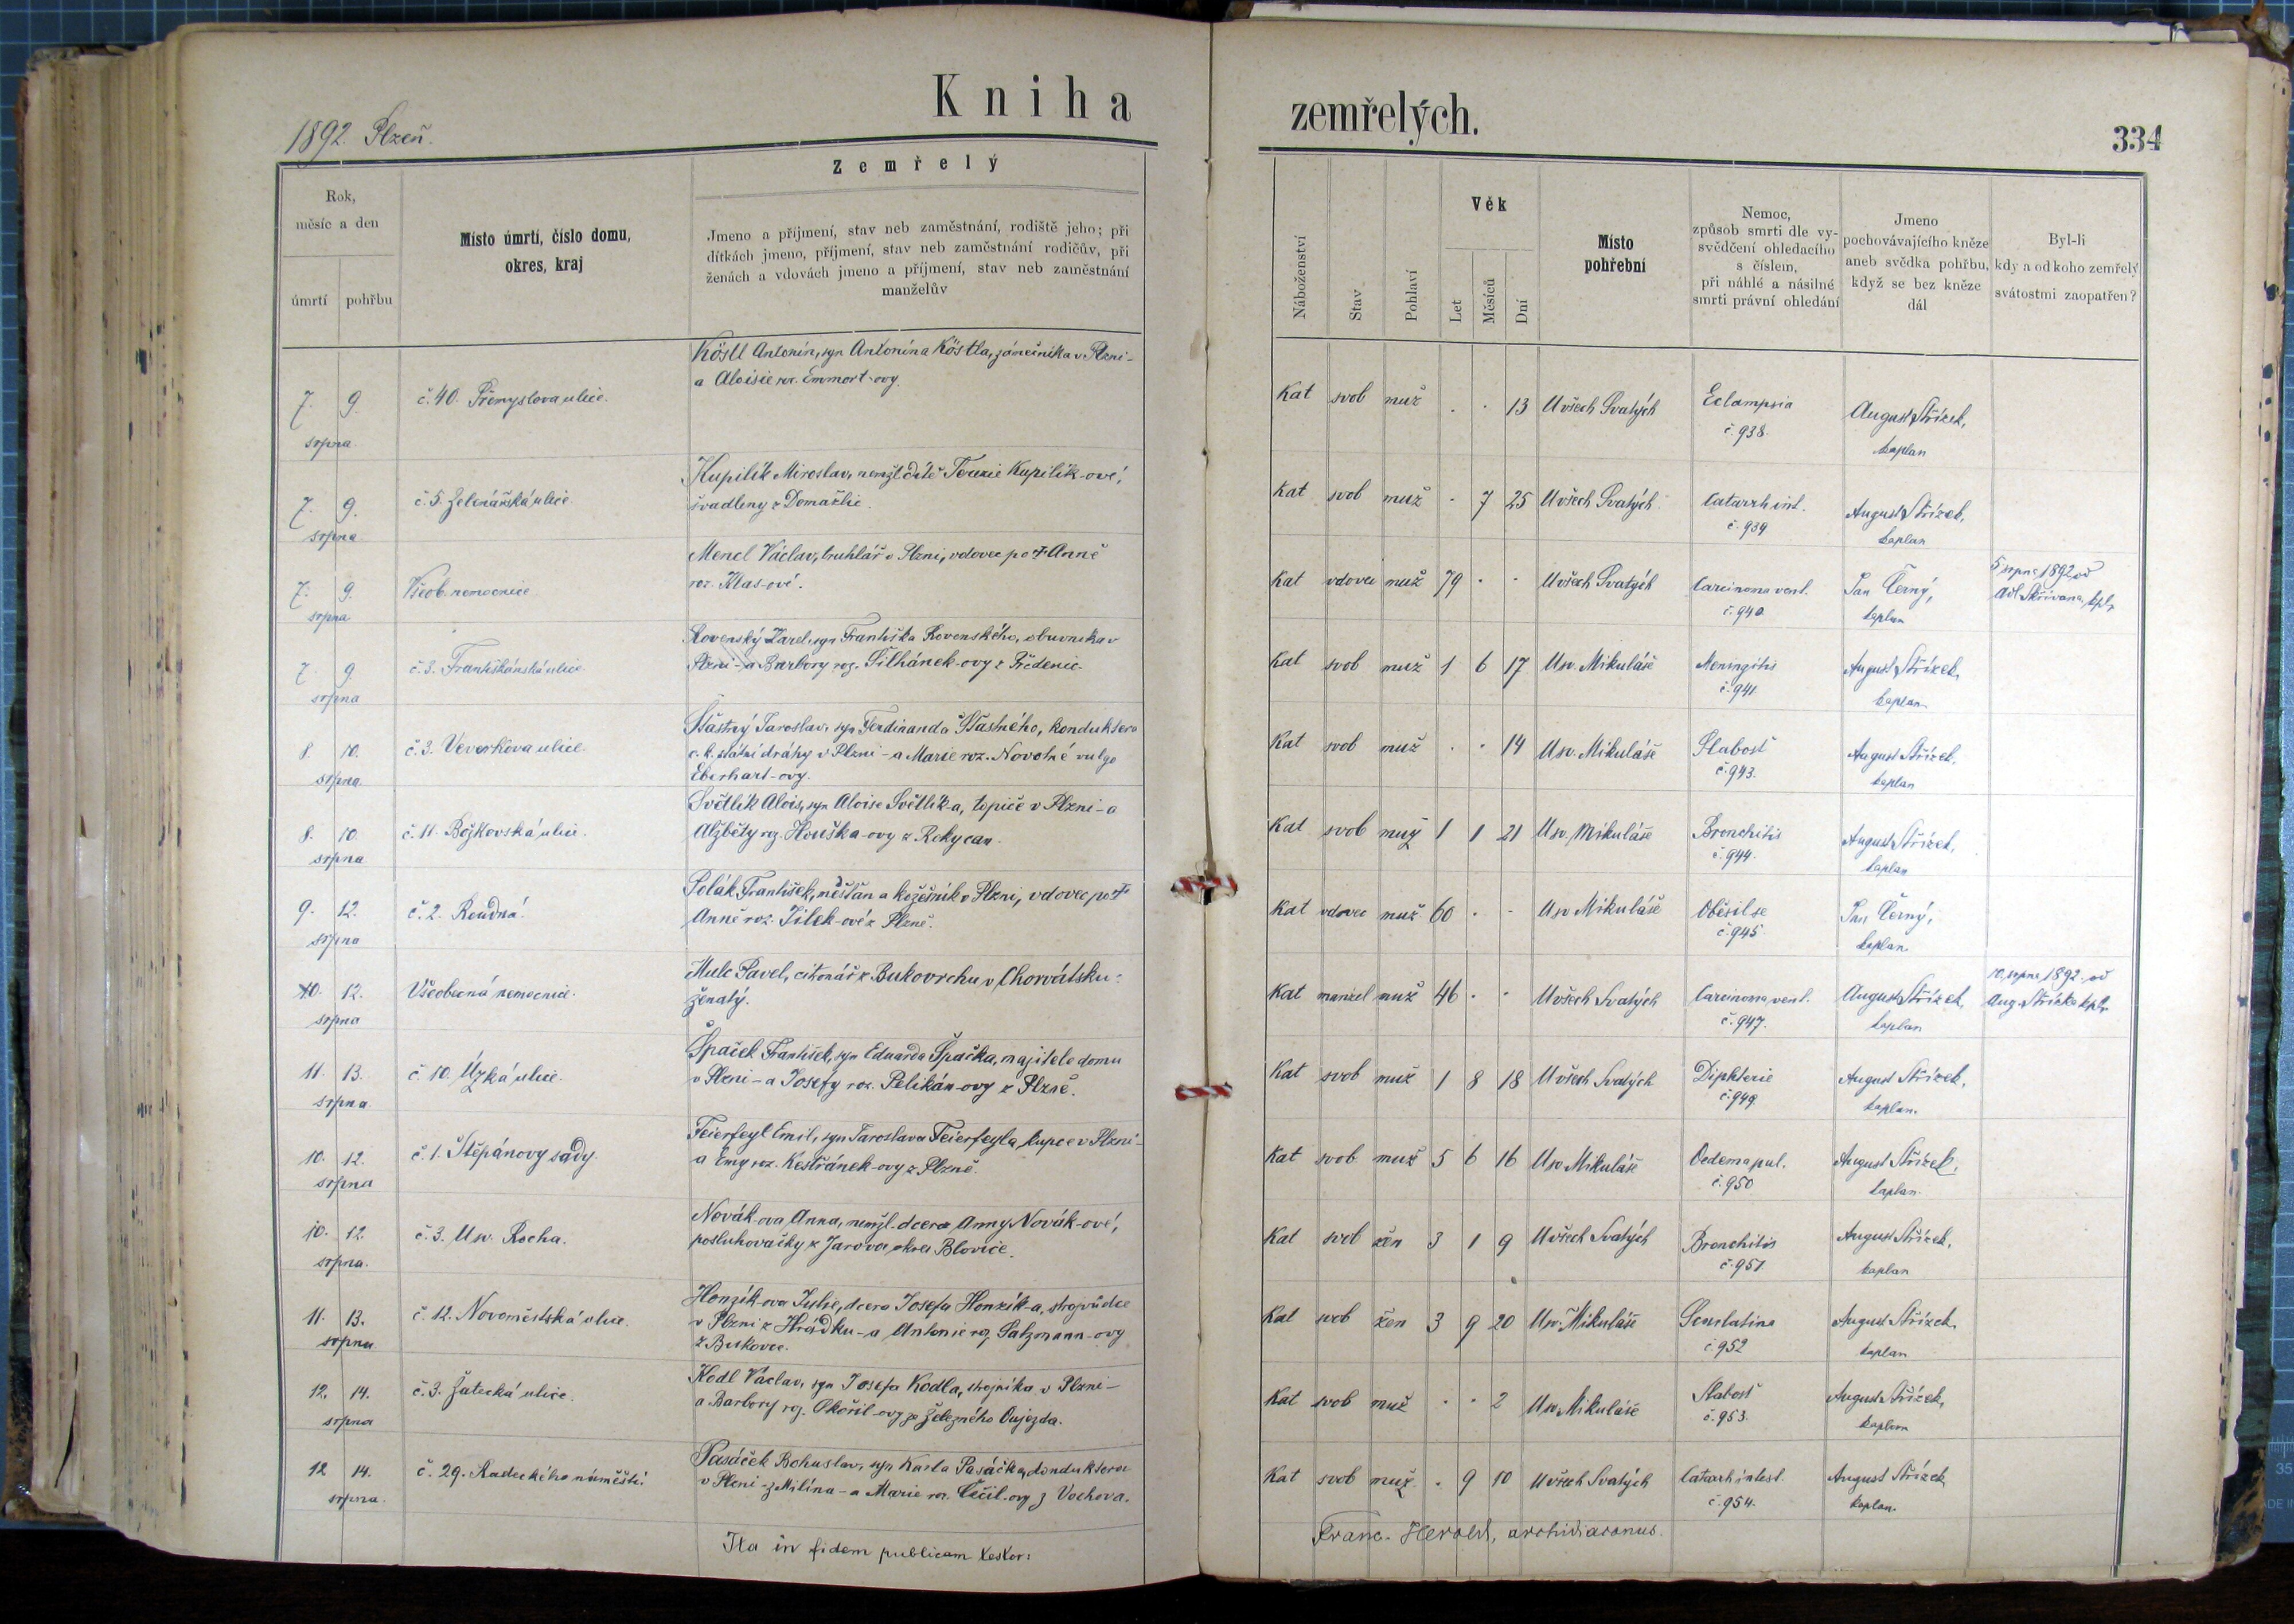 Kniha zemřelých.
1892. Plzeň.
334
Zemřelý
Rok,
měsíc a den
úmrtí pohřbu
Místo úmrtí, číslo domu,
okres, kraj
Jmeno a příjmení, stav neb zaměstnání, rodiště jeho; při
dítkách jmeno, příjmení, stav neb zaměstnání rodičův, při
ženách a vdovách jmeno a příjmení, stav neb zaměstnání
manželův
Náboženství
Stav
Pohlaví
Věk
Let
Měsíců
Dní
Místo
pohřební
Nemoc,
způsob smrti dle vy-
svědčení ohledacího
s číslem,
při náhlé a násilné
smrti právní ohledání
Jmeno
pochovávajícího kněze
aneb svědka pohřbu,
když se bez kněze
dál
Byl-li
kdy a od koho zemřelý
svátostmi zaopatřen?
7. 9.
srpna
č. 40. Přemyslova ulice.
Köstl Antonín, syn Antonína Köstla, zámečníka v Plzni-
a Aloisie roz. Emmort-ovy.
Kat svob muž . . 13 U všech Svatých
Eclampsia
č. 938.
August Střízek,
kaplan
7. 9.
srpna
č. 5. Zelenářská ulice
Kupilík Miroslav, nemžl. dítě Terezie Kupilík-ové,
švadleny z Domažlic.
Kat svob muž . 7 25 U všech Svatých
Catarrh int.
č. 939
August Střízek,
kaplan
7. 9.
srpna
Všeob. nemocnice
Mencl Václav, truhlář v Plzni, vdovec po † Anně
roz. Klas-ové.
Kat vdovec muž 79 . . U všech Svatých
Carcinoma vent.
č. 940
Jan Černý,
kaplan
5 srpna 1892 od
Ad. Skřivana, kpl.
7. 9.
srpna
č. 3. Františkánská ulice
Rovenský Karel, syn Františka Rovenského, obuvníka v
Plzni - a Barbory roz. Šilhánek-ovy z Předenic.
Kat svob muž 1 6 17 U sv. Mikuláše
Meningitis
č. 941
August Střízek,
kaplan
8. 10.
srpna
č. 3. Veverkova ulice
Šťastný Jaroslav, syn Ferdinanda Šťastného, konduktera
c. k. státní dráhy v Plzni - a Marie roz. Novotné vulgo
Eberhart-ovy.
Kat svob muž . . 14 U sv. Mikuláše
Slabost
č. 943.
August Střízek,
kaplan
8. 10.
srpna
č. 11. Božkovská ulice.
Světlík Alois, syn Aloise Světlík-a, topiče v Plzni - a
Alžběty roz. Houška-ovy z Rokycan.
Kat svob muž 1 1 21 U sv. Mikuláše
Bronchitis
č. 944.
August Střízek,
kaplan
9. 12.
srpna
č. 2. Roudná.
Polák František, měšťan a kožešník v Plzni, vdovec po †
Anně roz. Jílek-ové z Plzně.
Kat vdovec muž 60 . . U sv. Mikuláše
Oběsil se
č. 945
Jan Černý,
kaplan
10. 12.
srpna
Všeobecná nemocnice.
Mulc Pavel, z Bukovrchu v Chorvátsku-
ženatý.
Kat manžel muž 46 . . U všech Svatých
Carcinoma vent.
č. 947.
August Střízek,
kaplan
10. srpna 1892. od
Aug. Střízka kpl.
11. 13.
srpna
č. 10. Úzká ulice.
Špaček František, syn Eduarda Špačka, majitele domu
v Plzni - a Josefy roz. Pelikán-ovy z Plzně.
Kat svob muž 1 8 18 U všech Svatých
Diphterie
č. 949
August Střízek,
kaplan.
10. 12.
srpna
č. 1. Štěpánovy sady.
Feierfeyl Emil, syn Jaroslava Feierfeyla, kupce v Plzni-
a Emy roz. Kestřánek-ovy z Plzně.
Kat svob muž 5 6 16 U sv Mikuláše
Oedema pul.
č. 950
August Střízek,
kaplan.
10. 12.
srpna.
č. 3. U sv. Rocha.
Novák-ova Anna, nemžl. dcera Anny Novák-ové,
posluhovačky z Jarova, okres Blovice.
Kat svob žen 3 1 9 U všech Svatých
Bronchitis
č. 951
August Střízek,
kaplan
11. 13.
srpna
č. 12. Novoměstská ulice.
Honzík-ova Julie, dcera Josefa Honzík-a, strojvůdce
v Plzni z Hrádku - a Antonie roz. Salzmann-ovy
z Bukovce.
Kat svob žen 3 9 20 U sv. Mikuláše
Scarlatina
č. 952
August Střízek,
kaplan
12. 14.
srpna
č. 3. Žatecká ulice.
Kodl Václav, syn Josefa Kodla, strojníka v Plzni-
a Barbory roz. Okořil-ovy ze Železného Oujezda.
Kat svob muž . . 2 U sv. Mikuláše
Slabost
č. 953.
August Střízek,
kaplan
12 14.
srpna.
č. 29. Radeckého náměstí
Pasáček Bohuslav, syn Karla Pasáčka, konduktera
v Plzni - z Milína - a Marie roz. Cečil-ovy z Vochova.
Kat svob muž . 9 10 U všech Svatých
Catarh intest.
č. 954.
August Střízek
kaplan.
Ita in fidem publicam testor: Franc. Herold, archidiaconus.